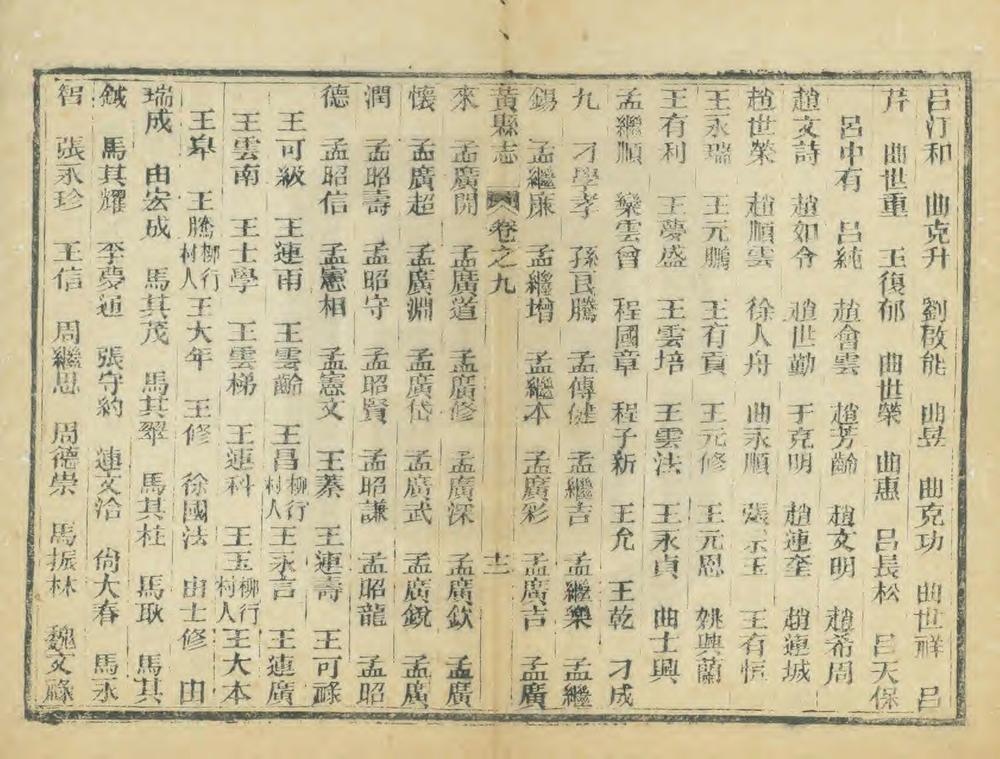 呂汀和 曲克升 劉啟能 曲昱 曲克功 曲世祥 呂
芹 曲世重 王復郁 曲世榮 曲惠 呂長松 呂天保
呂中有 呂純 趙會雲 趙芳齡 趙文明 趙希周
趙文詩 趙如令 趙世勤 于克明 趙連奎 趙連城
趙世榮 趙順雲 徐人舟 曲永順 張永玉 王有恒
王永瑞 王元鵬 王有貢 王元修 王元恩 姚興蘭
王有利 王夢盛 王雲培 王雲法 王永貞 曲士興
孟繼順 欒雲會 程國章 程子新 王允 王乾 刁成
九 刁學孝 孫民騰 孟傳健 孟繼吉 孟繼樂 孟繼
錫 孟繼廉 孟繼增 孟繼本 孟廣彩 孟廣吉 孟廣
黃縣志 卷之九 十二
來 孟廣開 孟廣道 孟廣修 孟廣深 孟廣欽 孟廣
懷 孟廣超 孟廣淵 孟廣岱 孟廣武 孟廣銳 孟廣
潤 孟昭壽 孟昭守 孟昭賢 孟昭謙 孟昭龍 孟昭
德 孟昭信 孟憲相 孟憲文 王蓁 王連壽 王可祿
王可級 王連雨 王雲齡 王昌柳行村人 王永言 王連廣
王雲南 王士學 王雲梯 王連科 王玉柳行村人 王大本
王皋 王騰柳行村人 王大年 王修 徐國法 由士修 由
瑞成 由宏成 馬其茂 馬其翠 馬其柱 馬耿 馬其
鉞 馬其耀 李夢通 張守約 連文洽 尙大春 馬永
智 張永珍 王信 周繼思 周德崇 馬振林 魏文祿